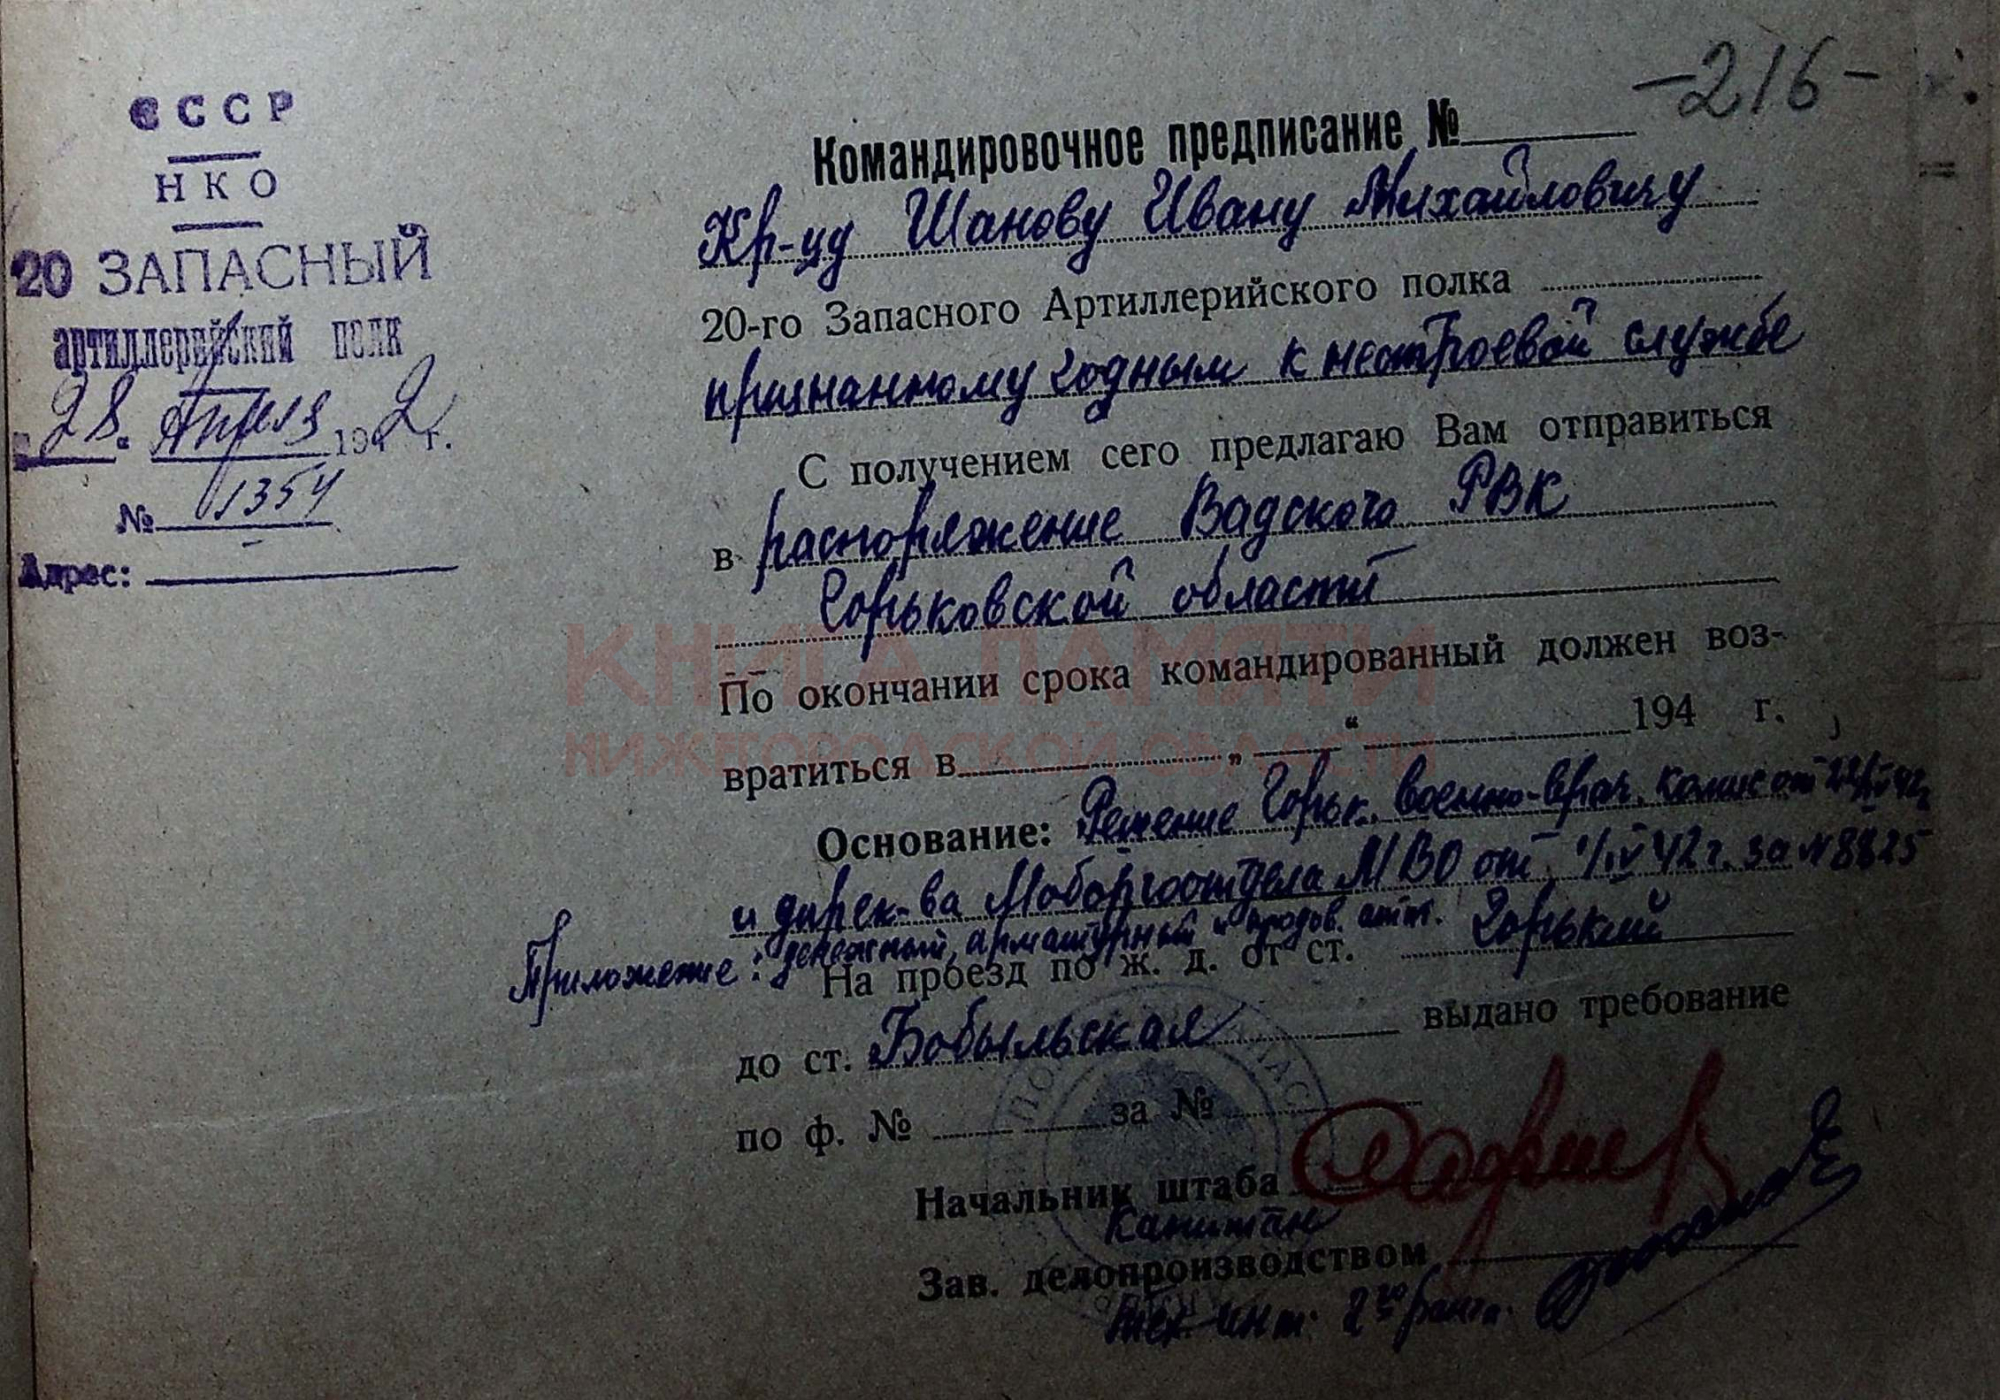 СССР
НКО
20 ЗАПАСНЫЙ
артиллерийский полк
"28" Апреля 1942 г.
№ 1354
Адрес:
-216-
Командировочное предписание №
Кр-цу Шанову Ивану Михайловичу
20-го Запасного Артиллерийского полка
признанному годным к нестроевой службе
С получением сего предлагаю Вам отправиться
в распоряжение Вадского РВК
Горьковской области
По окончании срока командированный должен воз-
вратиться в „ “ 194 г.
Основание: Решение Горьк. военно-врач. комис от
и дирек-ва Моборготдела МВО от 1/IV 42 г. за № 8825
Приложение: денежный, арматурный и продов. атт.
На проезд по ж. д. от ст. Горький
до ст. Бобыльская выдано требование
по ф. № за №
Начальник штаба
Капитан
Зав. делопроизводством
тех. инт. 2го ранга
КНИГА ПАМЯТИ
НИЖЕГОРОДСКОЙ ОБЛАСТИ